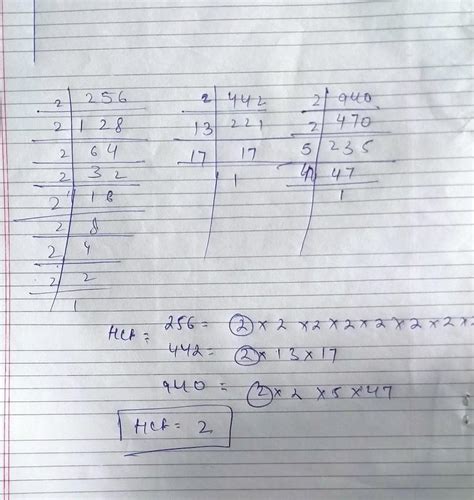 2 | 256
2 | 128
2 | 64
2 | 32
2 | 16
2 | 8
2 | 4
2 | 2
1
2 | 442
13 | 221
17 | 17
1
2 | 940
2 | 470
5 | 235
47 | 47
1
HCF = 256 = 2 × 2 × 2 × 2 × 2 × 2 × 2 × 2
442 = 2 × 13 × 17
940 = 2 × 2 × 5 × 47
HCF = 2